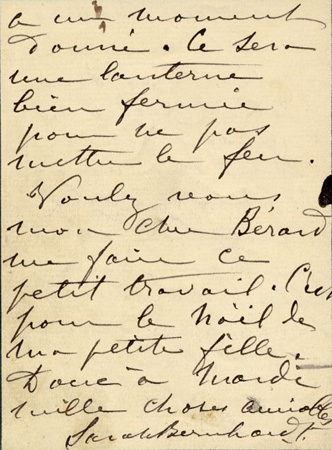 a un moment
donné. Ce sera
une lanterne
bien fermée
pour ne pas
mettre le feu.
Voulez vous
mon cher Bérard
me faire ce
petit travail. C'est
pour le Nöel de
ma petite fille.
Donc à Mardi
mille choses aimables
Sarah Bernhardt.